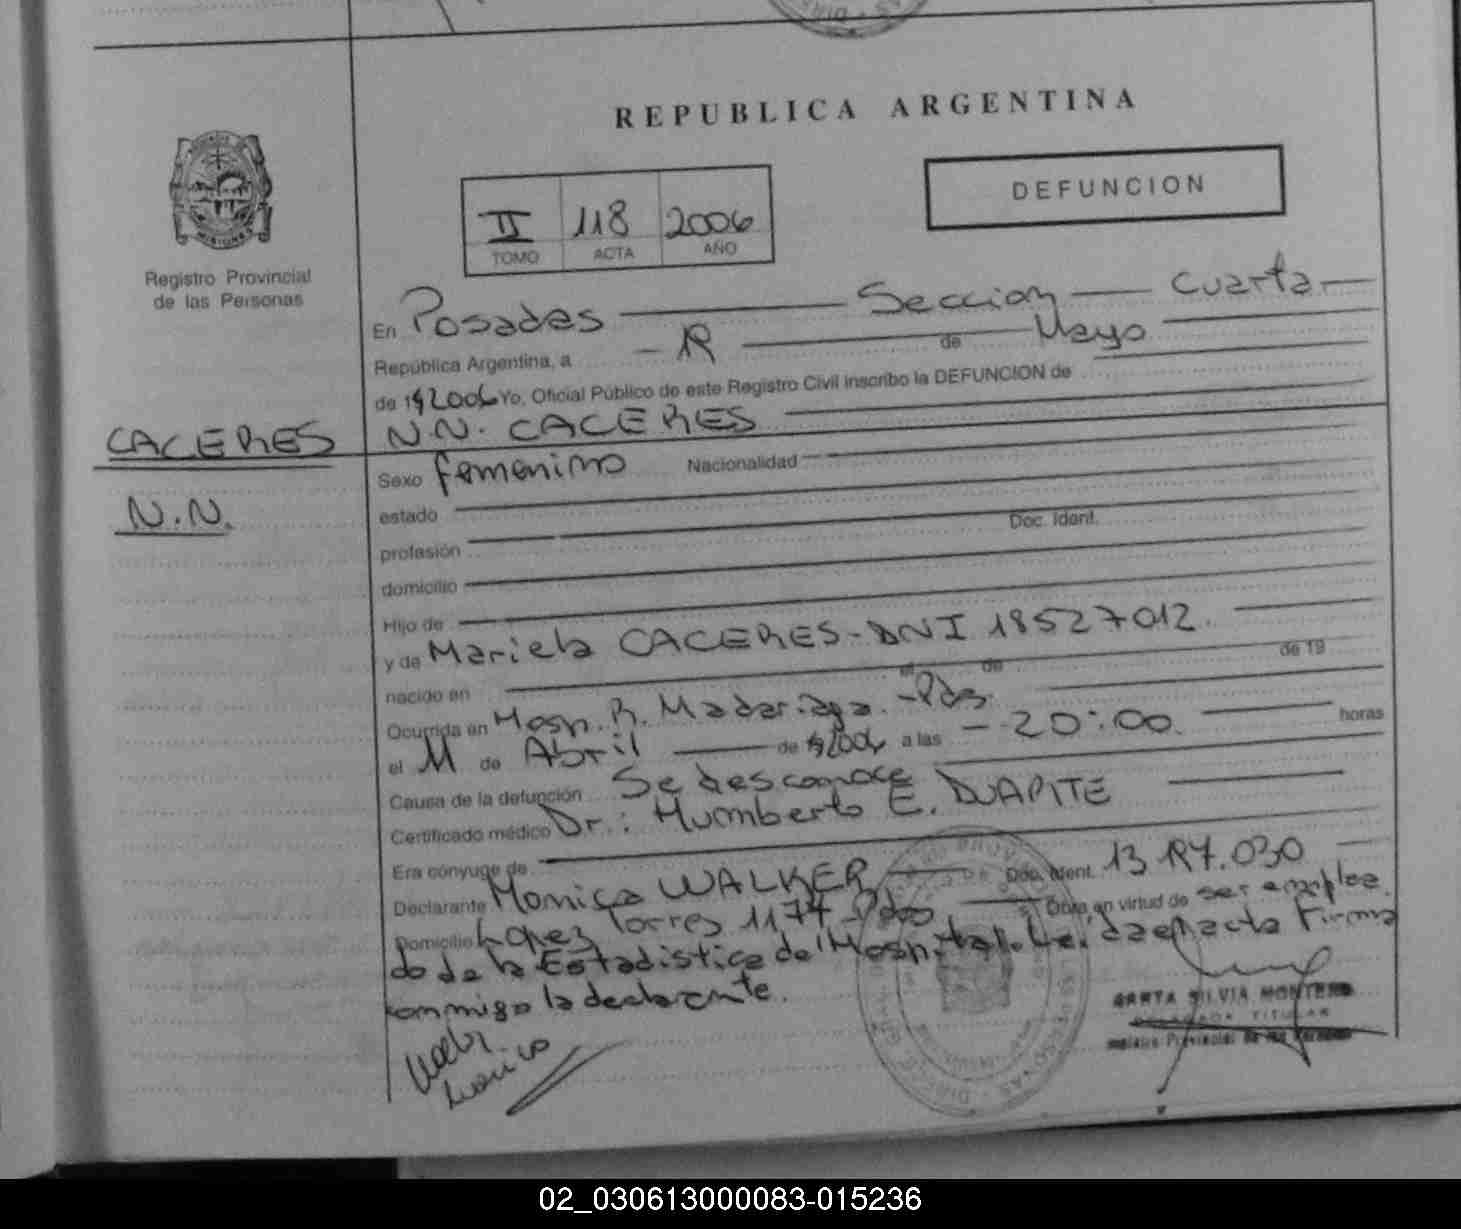 REPUBLICA ARGENTINA
DEFUNCION
II 118 2006
TOMO ACTA AÑO
MISIONES
Registro Provincial
de las Personas
En Posadas Seccion Cuarta
República Argentina, a de Mayo
de 19 2006 Yo, Oficial Público de este Registro Civil inscribo la DEFUNCION de
CACERES
N.N.
N.N. CACERES
Sexo femenino Nacionalidad
estado
profesión Doc. Ident.
domicilio
Hijo de
y de Mariela CACERES - DNI 18527012
nacido en el de de 19
Ocurrida en Hosp. R. Madariaga - Pdas.
el 11 de Abril de 2006 a las - 20:00 horas
Causa de la defunción Se desconoce
Certificado médico Dr.: Humberto E. DUARTE
Era cónyuge de
Declarante Monica WALKER Doc. Ident. 13 197.030
Domicilio Lopez Torres 1177 - Pdas Obra en virtud de ser emplea
do de la Estadistica del Hospital. Leida el acta Firma
conmigo la declarante.
SILVIA
TITULAR
02_030613000083-015236